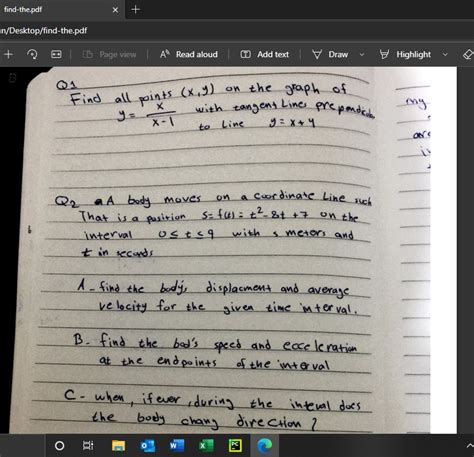 find-the.pdf
in/Desktop/find-the.pdf
Page view
A Read aloud
Add text
Draw
Highlight
Q1
Find all points (x,y) on the graph of
y = x / x-1 with tangent Lines prependicular
to Line y = x+4
my
are
Q2 aA body moves on a coordinate Line such
That is a position S = f(t) = t²-8t +7 on the
interval 0 ≤ t ≤ 9 with s meters and
t in seconds
A - find the body's displacment and average
velocity for the given time interval.
B - find the bod's speed and ecceleration
at the endpoints of the interval
C - when, if ever, during the inteval does
the body chang direction?